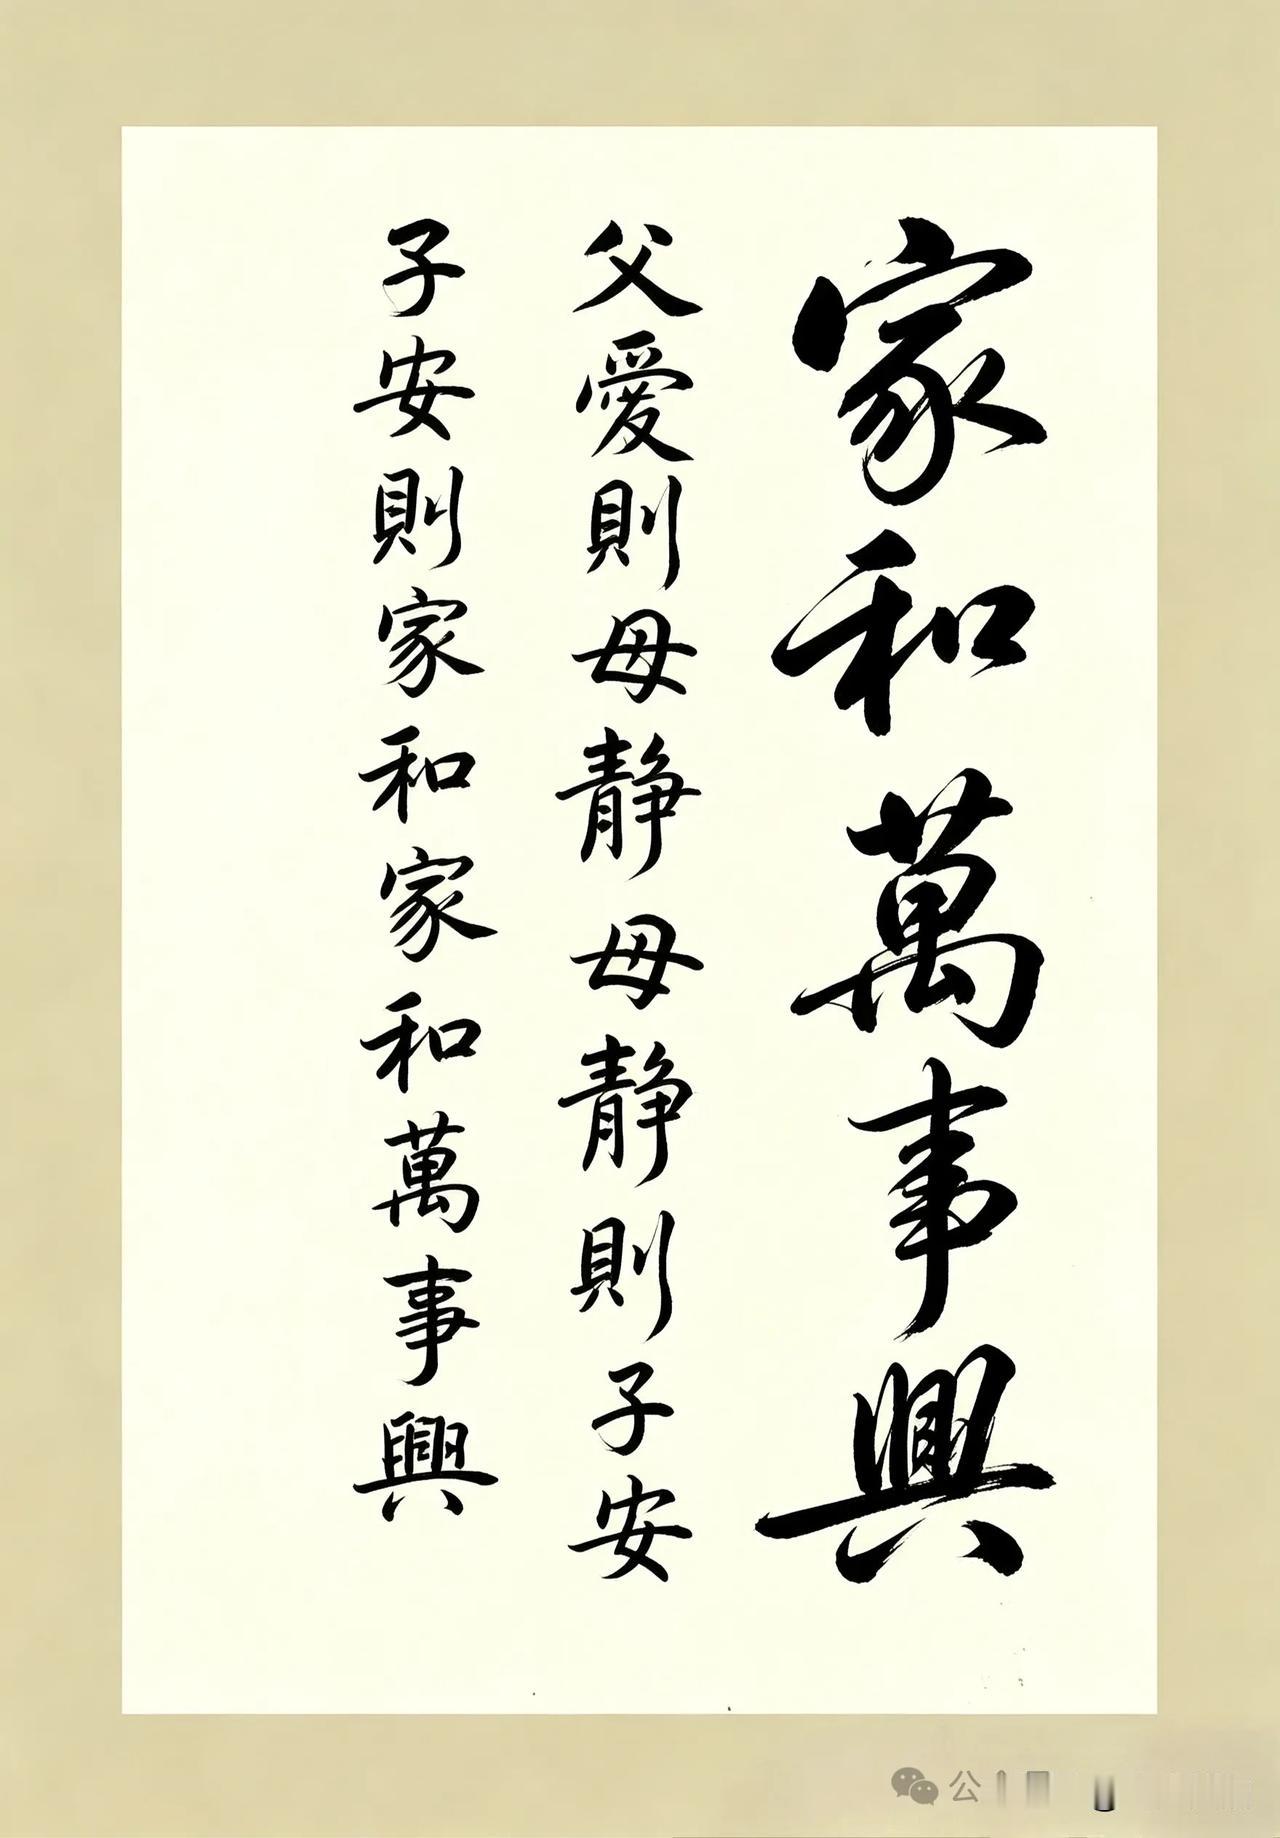 家和萬事興
父愛則母静母静則子安
子安則家和家和萬事興
公